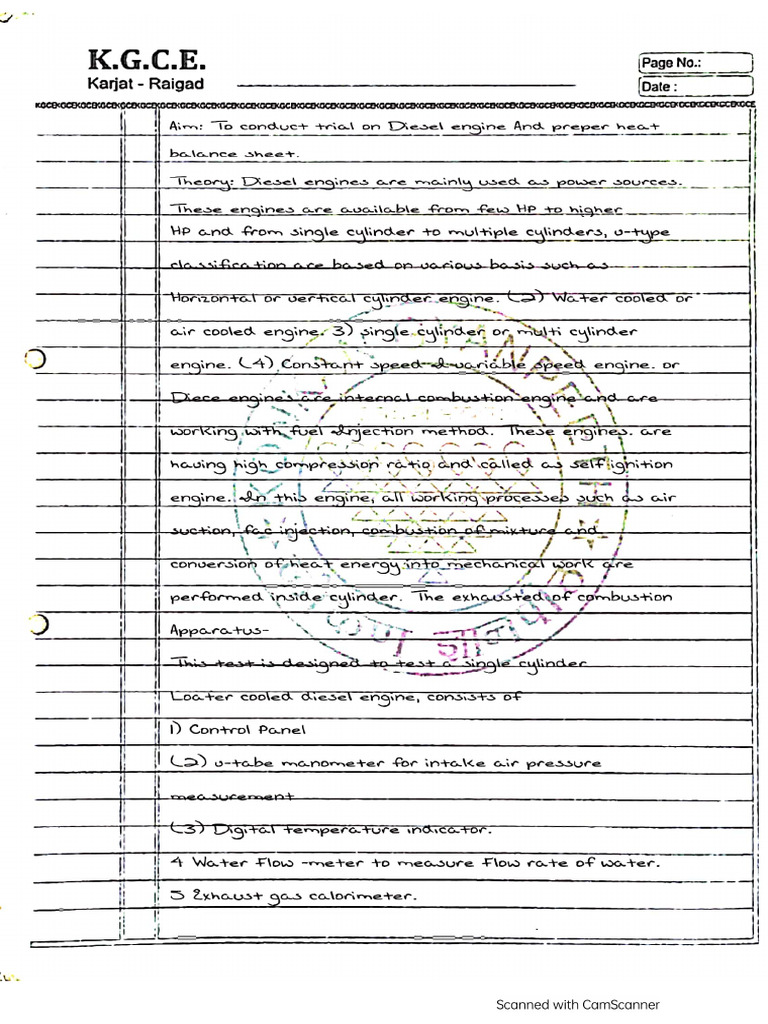 K.G.C.E.
Karjat - Raigad
Page No.:
Date :
Aim: To conduct trial on Diesel engine And preper heat
balance sheet.
Theory: Diesel engines are mainly used as power sources.
These engines are available from few HP to higher
HP and from single cylinder to multiple cylinders, u-type
classification are based on various basis such as
Horizontal or vertical cylinder engine. (2) Water cooled or
air cooled engine. 3) single cylinder or multi cylinder
engine. (4) Constant speed & variable speed engine. or
Diece engines are internal combustion engine and are
working with fuel Injection method. These engines. are
having high compression ratio and called as self ignition
engine. In this engine, all working processes such as air
suction, fac injection, combustion of mixture and
conversion of heat energy into mechanical work are
performed inside cylinder. The exhausted of combustion
Apparatus-
This test is designed to test a single cylinder
Loater cooled diesel engine, consists of
1) Control Panel
(2) u-tabe manometer for intake air pressure
measurement
(3) Digital temperature indicator.
4 Water Flow -meter to measure Flow rate of water.
5 Exhaust gas calorimeter.
Scanned with CamScanner